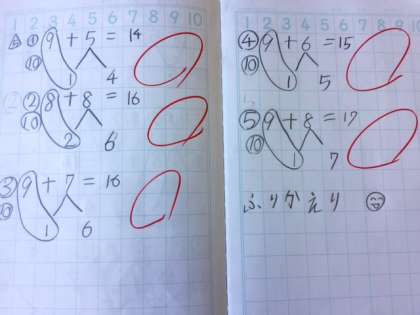 1 2 3 4 5 6 7 8 9 10
① 9+5=14
⑩
1 4
② 8+8=16
⑩
2 6
③ 9+7=16
⑩
1 6
1 2 3 4 5 6 7 8 9 10
④ 9+6=15
⑩
1 5
⑤ 9+8=17
⑩
1 7
ふりかえり